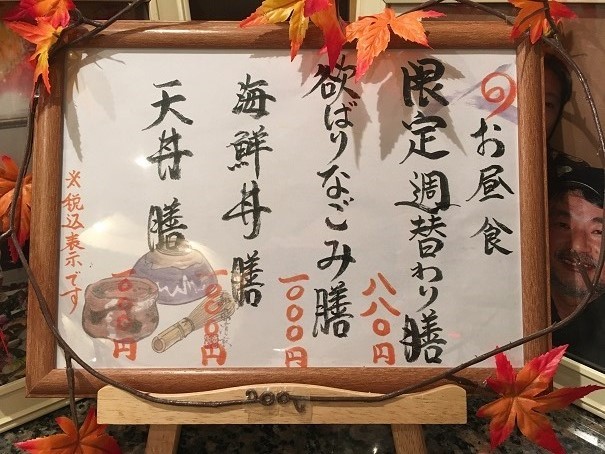 お昼食
限定週替わり膳
八八〇円
欲ばりなごみ膳
一〇〇〇円
海鮮丼膳
一〇〇〇円
天丼膳
一〇〇〇円
※税込表示です